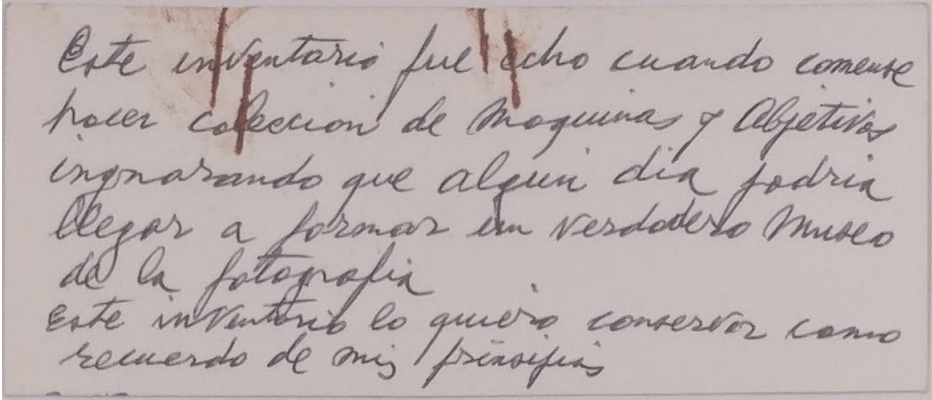 Este inventario fue echo cuando comense
hacer coleccion de Maquinas y Objetivos
ingnorando que algun dia podria
llegar a formar un verdadero Museo
de la fotografia
Este inventario lo quiero conservar como
recuerdo de mis prinsipios